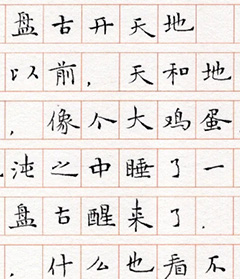 盘古开天地
以前，天和地
，像个大鸡蛋
沌之中睡了一
盘古醒来了．
，什么也看不